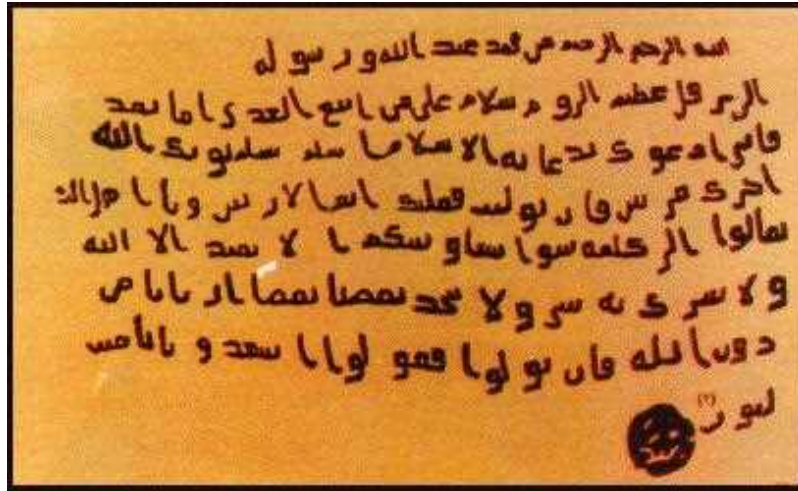 الرحمن الرحيم من محمد عبد الله و رسوله
الى هرقل عظيم الروم سلام على من اتبع الهدى اما بعد
فاني ادعوك بدعاية الاسلام اسلم تسلم يوتك الله
اجرك مرتين فان توليت فعليك اثم الاريسين ويا اهل
تعالوا الى كلمة سوا بيننا وبينكم الا نعبد الا الله
ولا نشرك به شي ولا يتخذ بعضنا بعضا اربابا من
دون الله فان تولوا فقولوا اشهدوا بانا مس
لمون